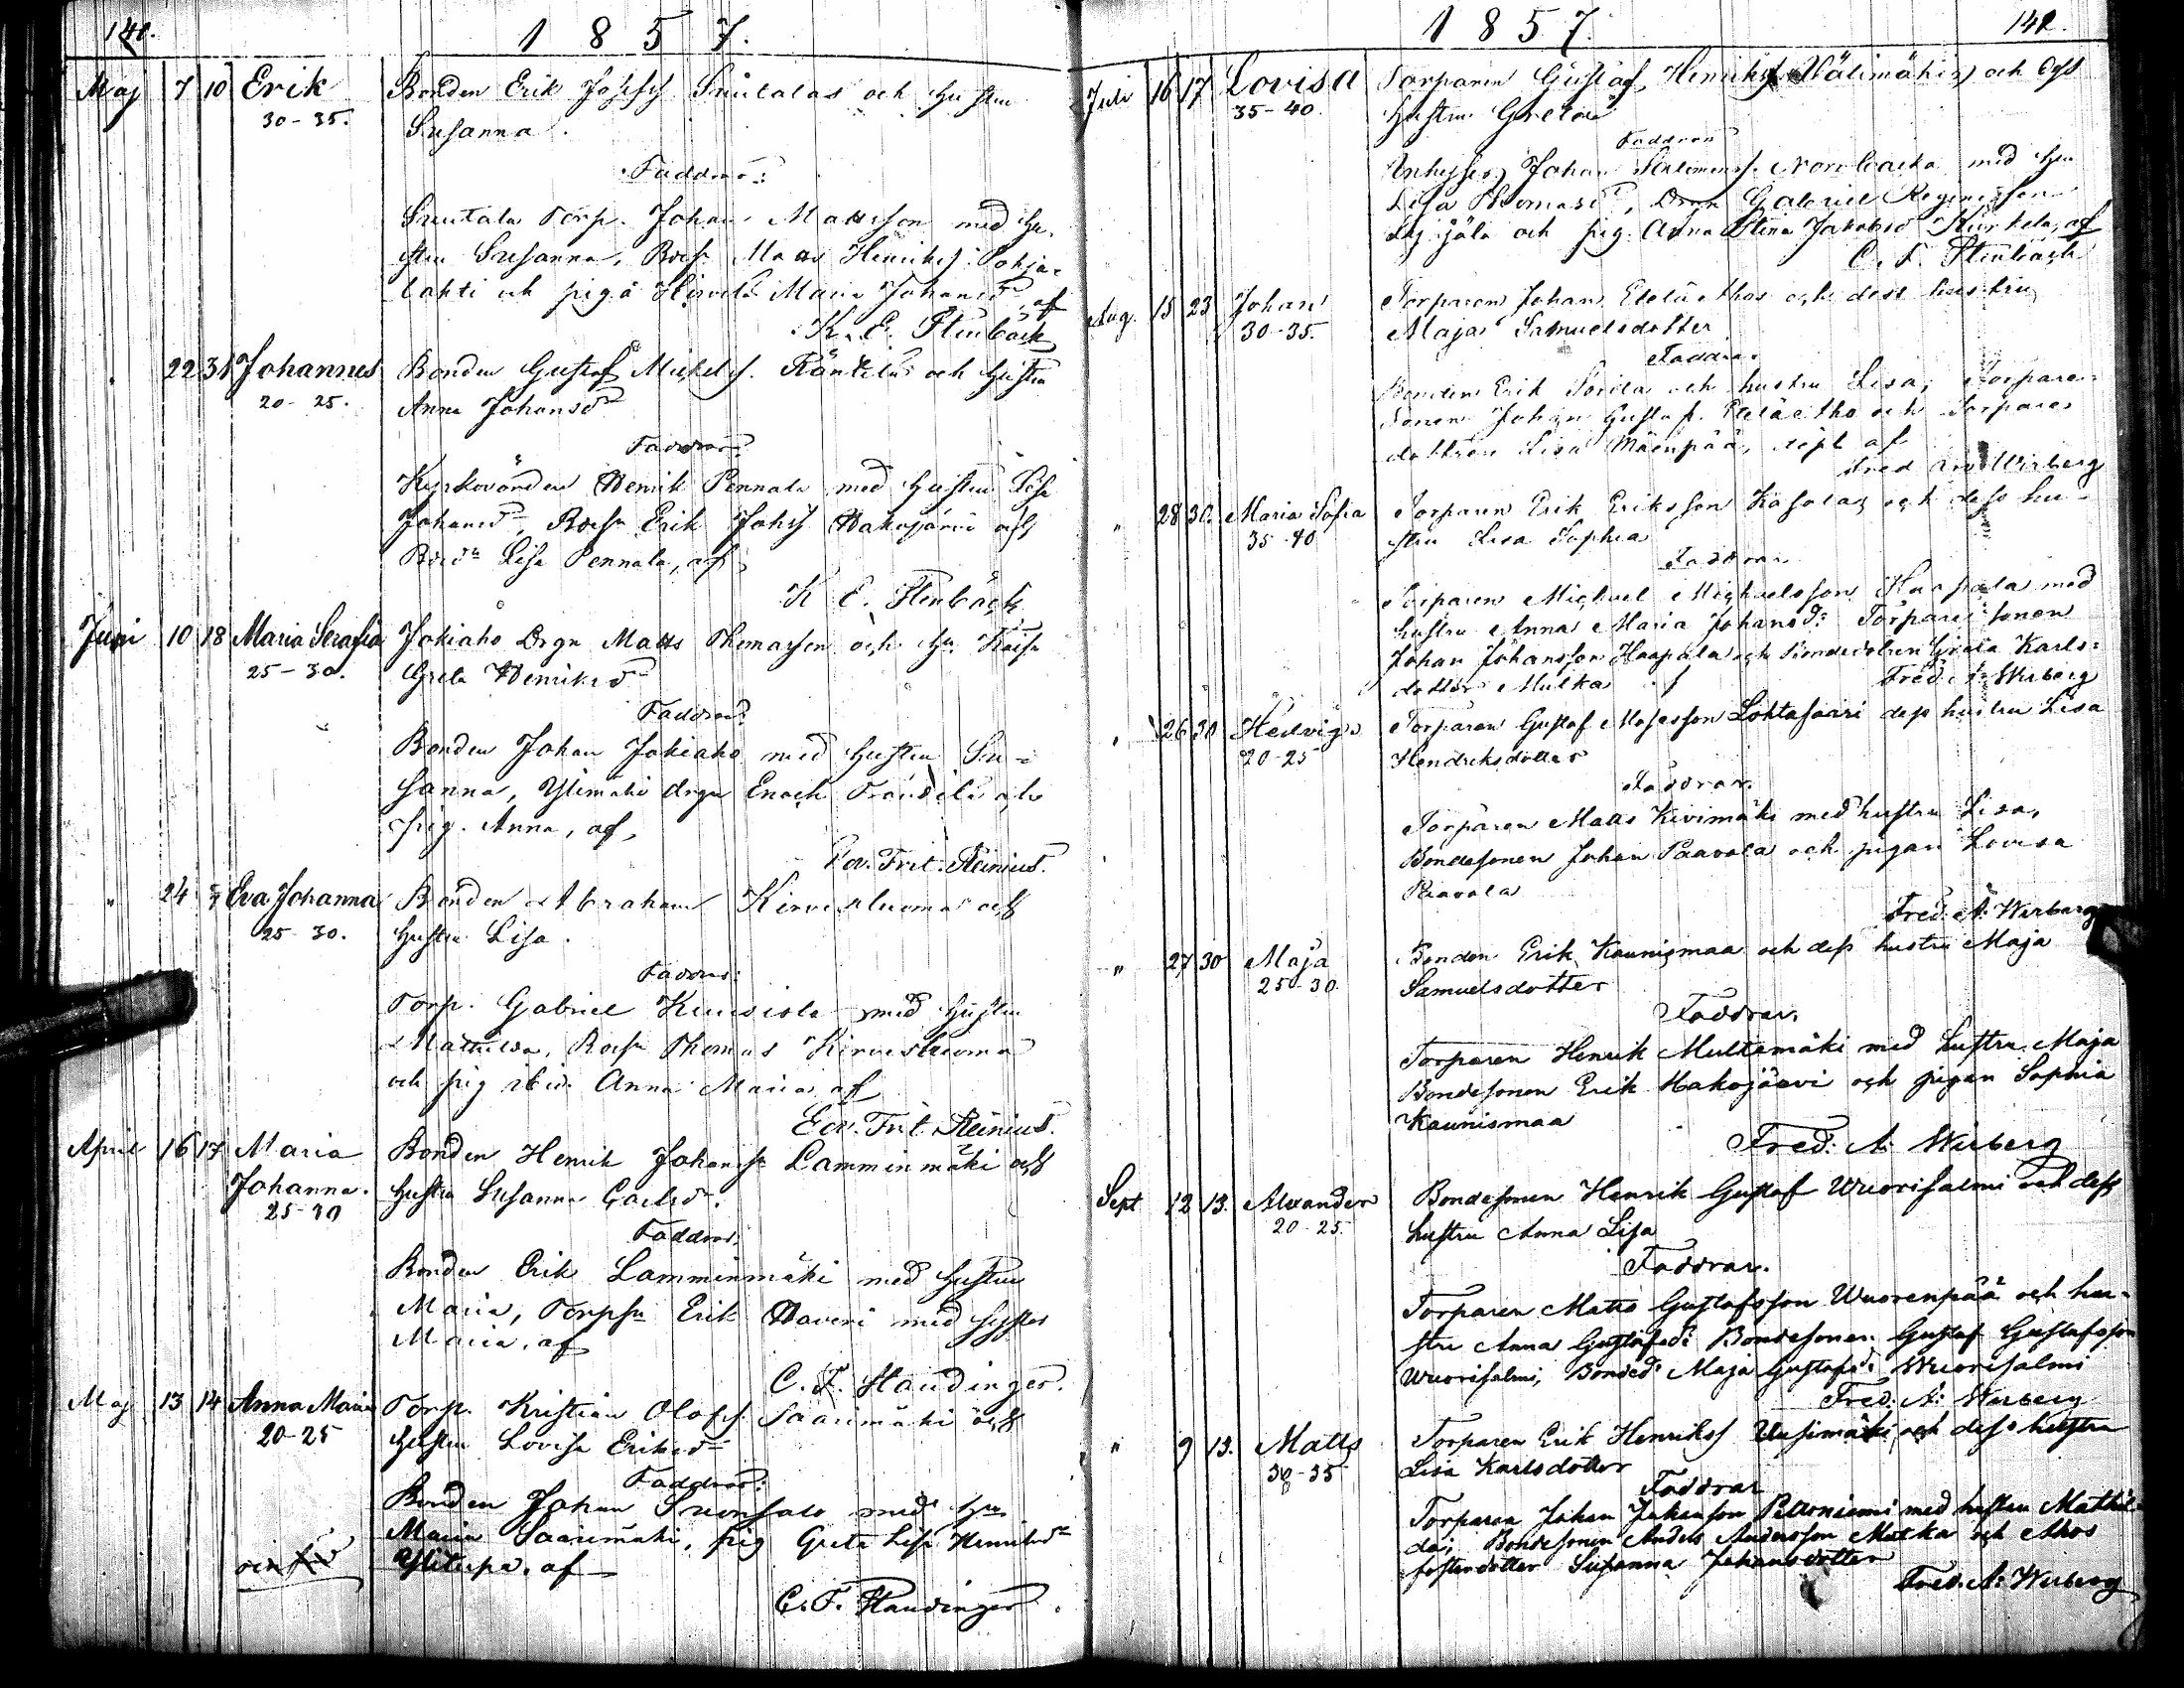 140.
1857.
Maj 7 10 Erik Bonden Erik Josefss. Suutalas och hustru
30-35. Susanna.
Faddrar:
Suutala Torp. Johan Mattsson med hu-
stru Susanna, Bdes. Matts Henrikss. Pohja-
lahti och piga Maria Johansdr, af
K. E. Stenbäck
" 22 31 Johannes Bonden Gustaf Mickelss. Räntilä och hustru
20-25. Anna Johansdr
Faddrar:
Kyrkovärden Henrik Pennala med hustru Lisa
Johansdr, Bdesn Erik Johss Hakojärvi och
Bdedr Lisa Pennala, af
K. E. Stenbäck
Juni 10 18 Maria Serafia Jokiaho Drgn Matts Thomasson och hu Kaisa
25-30. Greta Henriksdr
Faddrar:
Bonden Johan Jokiaho med hustru Su-
sanna, Ylimäki drgn Enoch och
pig. Anna, af
Edv. Frit. Reinius.
" 24 Eva Johanna Bonden Abraham Kirvesluoma och
25-30. hustru Lisa.
Faddrar:
Torp. Gabriel med hustru
Mathilda, Bdesn Thomas Kirvesluoma
och pig ibid. Anna Maria af
Edv. Frit. Reinius.
April 16 17 Maria Bonden Henrik Johanss Lamminmäki och
Johanna. hustru Susanna Carlsdr.
25-30
Faddrar:
Bonden Erik Lamminmäki med hustru
Maria, Torpsn Erik Haveri med syster
Maria, af
C. F. Standinger.
Maj 13 14 Anna Maria Torp. Kristian Olofss. Saarimäki och
20-25 hustru Lovisa Eriksdr
Faddrar:
Bonden Johan Suonsalo med hu
Maria Saarimäki, pig Greta Lisa Henriksdr
Ylitupa, af
C. F. Standinger
1857.
141.
Juli 16 17 Lovisa Torparen Gustaf Henrikss Välimäki och dess
35-40. hustru Greta
Faddrar
Inhyses Johan Salomonss. Norrbacka med hu
Lisa Thomasd, Dren Gabriel
och pig. Anna Stina Jakobsd af
C. F. Stenbäck
Aug. 15 23 Johan Torparen Johan Eteläaho och dess hustru
30-35. Maja Samuelsdotter
Faddrar.
Bonden Erik Sorila och hustru Lisa, Torpare-
sonen Johan Gustaf. Eteläaho och Torpare
dottren Lisa Mäenpää, döpt af
Fred Wirberg
" 28 30. Maria Sofia Torparen Erik Eriksson Kasola och dess hu-
35-40 stru Lisa Sophia
Faddrar
Torparen Michael Michaelsson Haapala med
hustru Anna Maria Johansd: Torparesonen
Johan Johansson Haapala och Bondedottren Greta Karls-
dotter Mulka Fred. A. Wirberg
" 26 30 Hedvig Torparen Gustaf Mosesson Lohtasaari dess hustru Lisa
20-25 Hendriksdotter
Faddrar.
Torparen Matts Kivimäki med hustru Lisa,
Bondesonen Johan Paavola och pigan Lovisa
Paavola
Fred. A. Wirberg
" 27 30 Maja Bonden Erik Kaunismaa och dess hustru Maja
25-30. Samuelsdotter
Faddrar.
Torparen Henrik Multamäki med hustru Maja
Bondesonen Erik Hakojärvi och pigan Sophia
Kaunismaa
Fred: A: Wirberg
Sept 12 13. Alexander Bondesonen Henrik Gustaf Wuorisalmi och dess
20-25. hustru Anna Lisa
Faddrar.
Torparen Matts Gustafsson Wuorenpää och hu-
stru Anna Gustafsd: Bondesonen Gustaf Gustafsson
Wuorisalmi, Bonded: Maja Gustafsd: Wuorisalmi
Fred: A: Wirberg
" 9 13. Matts Torparen Erik Henrikss Uusimäki och dess hustru
30-35 Lisa Karlsdotter
Faddrar
Torparen Johan Johansson Pettoniemi med hustru Mathil-
da, Bondesonen Anders Andersson Matka och Ahos
fosterdotter Susanna Johansdotter
Fred: A: Wirberg